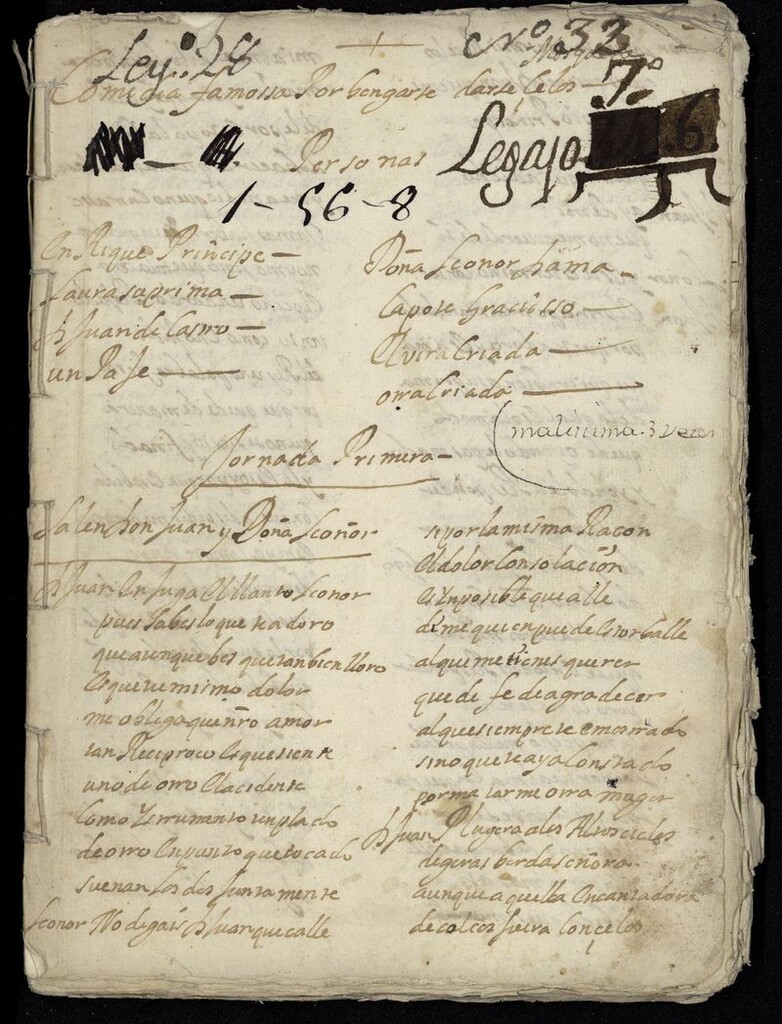 Leg.º 28
Nº 33
Comedia famossa Por bengarse darse Celos
7º
Personas
Legajo
6
1-56-8
EnRique Principe
Laura su prima
D Juan de Castro
un Paje
Doña Leonor Dama
Capote Graciosso
Elvira Criada
otra Criada
malissima 3 veces
Jornada Primera
Salen Don Juan y Doña Leonor
D Juan Enjuga el llanto Leonor
pues sabes lo que te adoro
que aunque bes que tan bien lloro
es que tu mismo dolor
me obliga que nro amor
tan Reciproco es que siente
uno de otro el acidente
Como Ynstrumento templado
de otro en punto que tocado
suenan los dos Juntamente
Leonor No digais D Juan que calle
si por la misma Racon
el dolor Consolación
es Ynposible que alle
dime quien puede estorballe
al que me tienes querer
que de fe de agradecer
al que siempre te e mostrado
sino que te aya Consado
por matarme otra muger
D Juan Plugera a los Altos cielos
de beras señora
aunque aquella Encantadora
de colcos fuera Con çelos